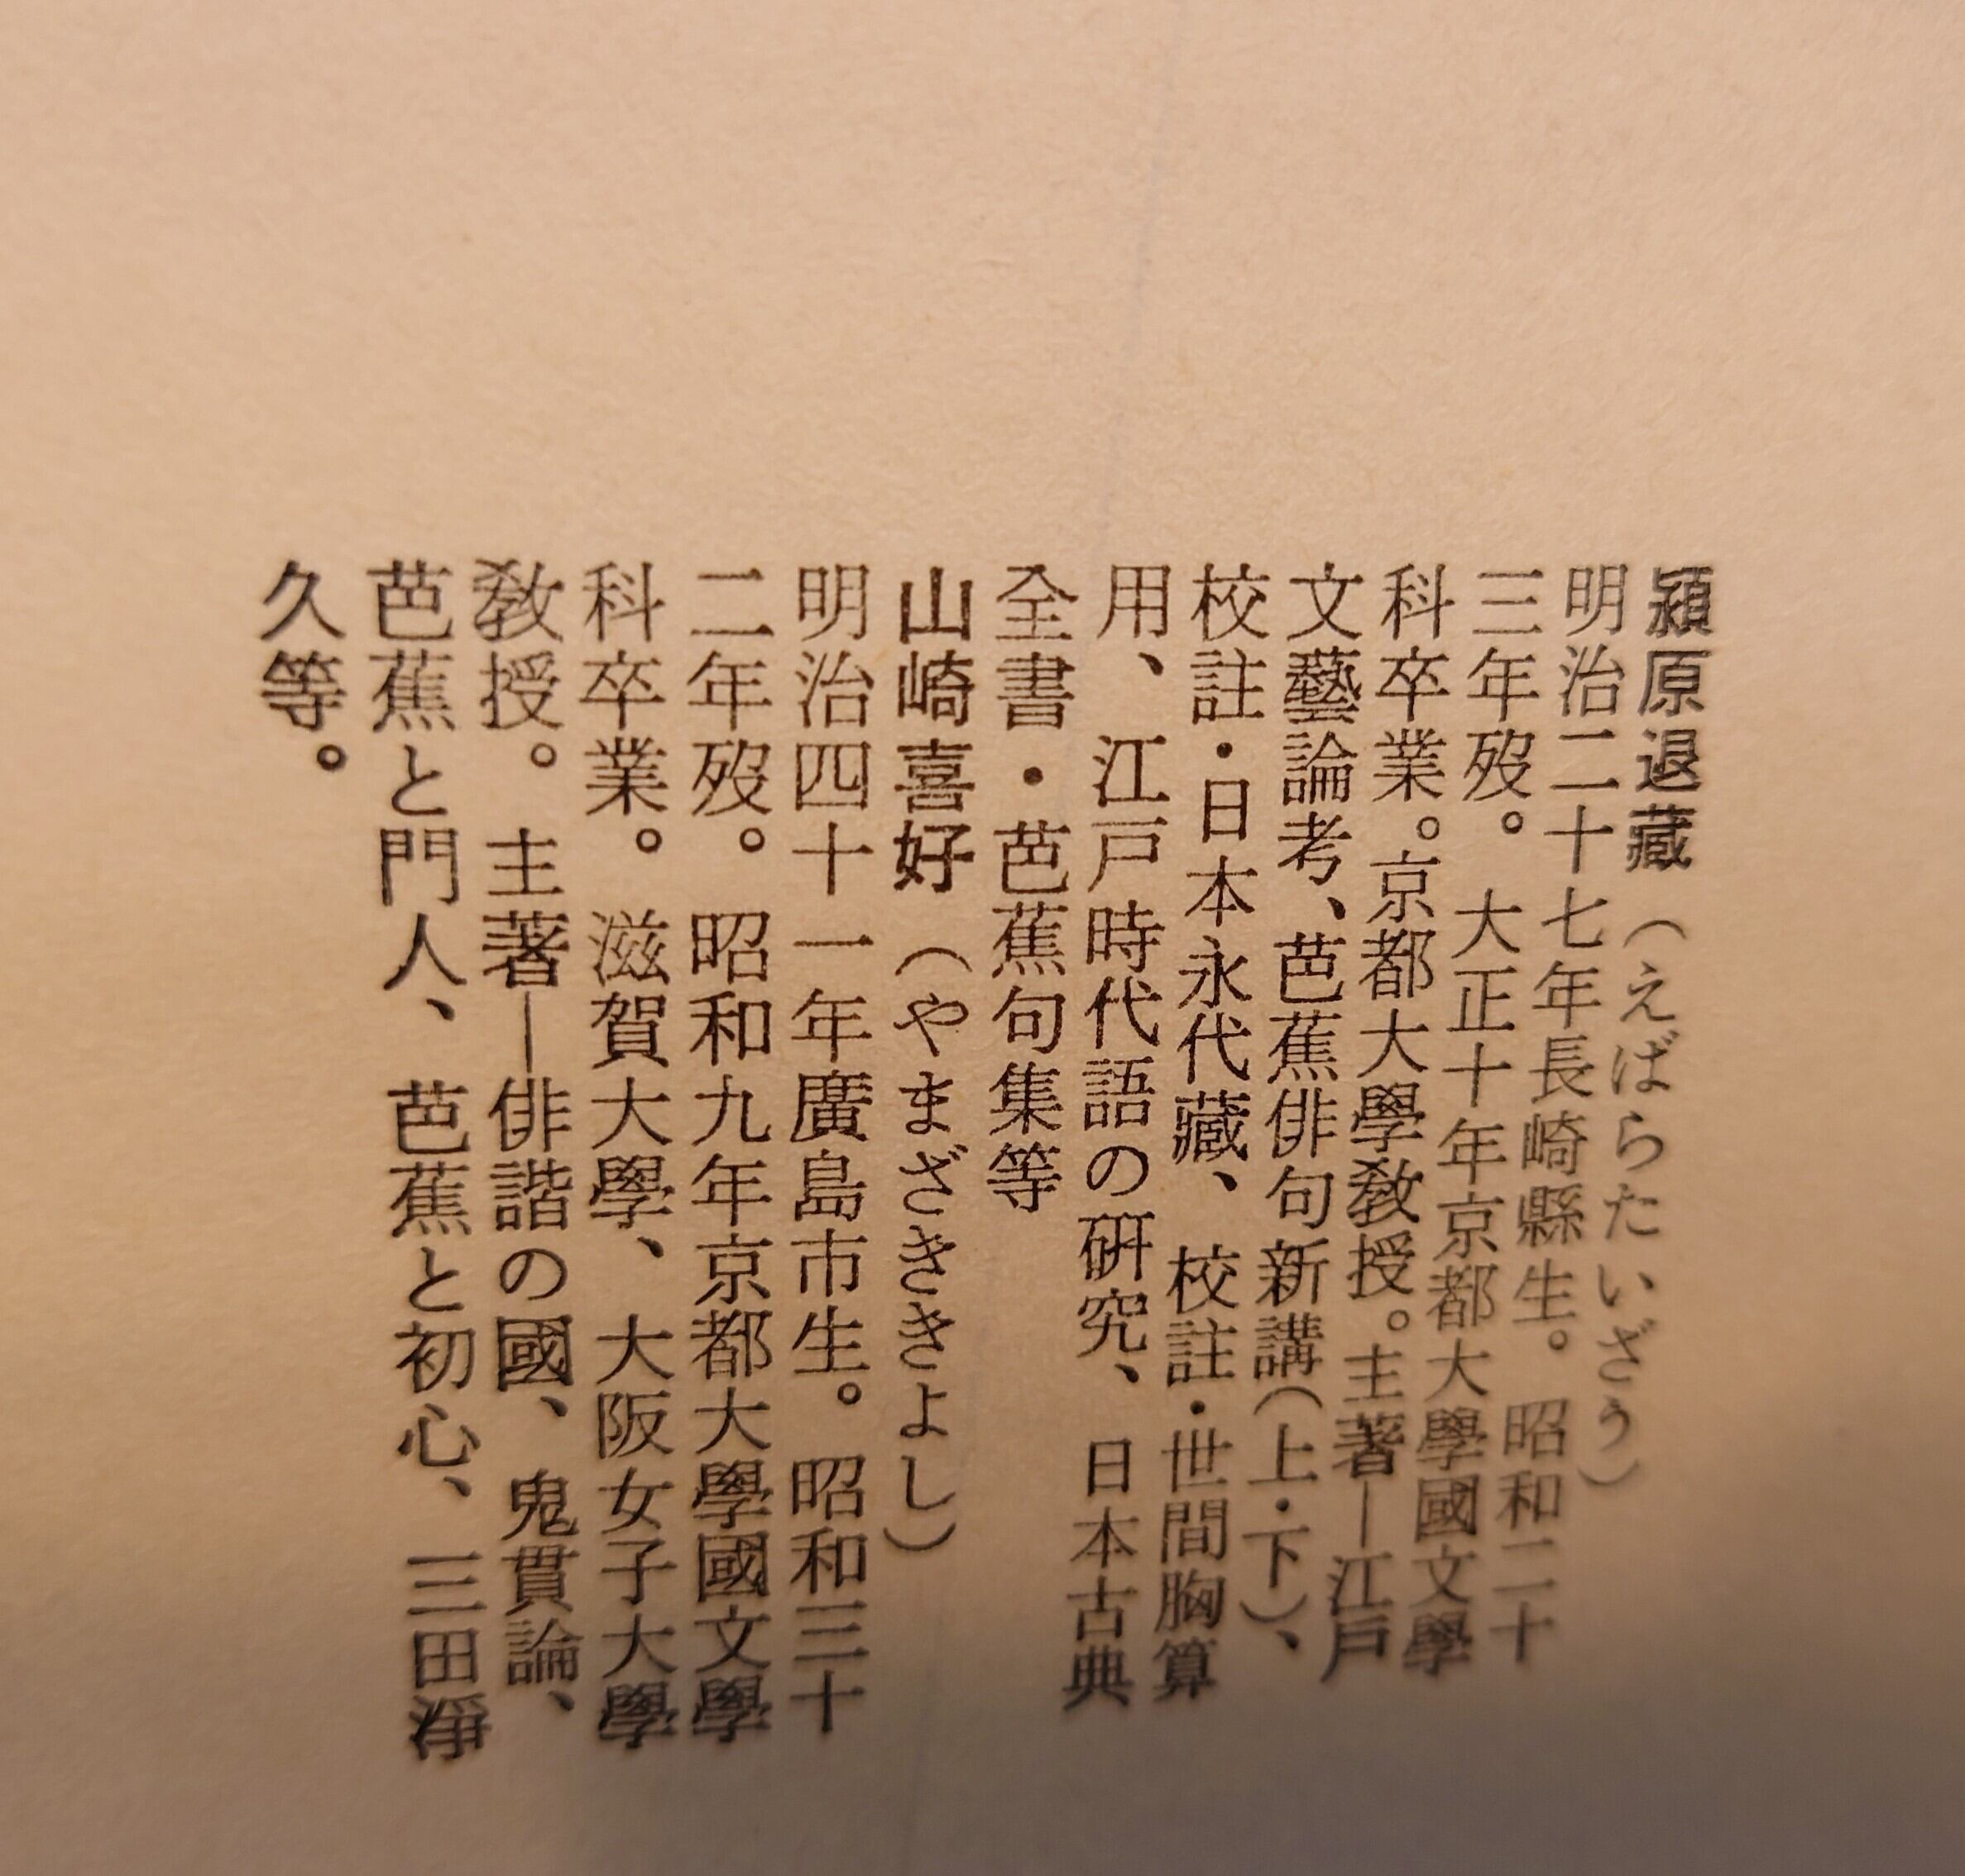 潁原退藏　（えばらたいざう）
明治二十七年長崎縣生。　昭和二十
三年歿。　大正十年京都大學國文學
科卒業。京都大學敎授。主著―江戸
文藝論考、芭蕉俳句新講（上・下）、
校註・日本永代藏、　校註・世間胸算
用、　江戸時代語の研究、　日本古典
全書・芭蕉句集等
山崎喜好　（やまざききよし）
明治四十一年廣島市生。　昭和三十
二年歿。　昭和九年京都大學國文學
科卒業。　滋賀大學、　大阪女子大學
敎授。　主著―俳諧の國、　鬼貫論、
芭蕉と門人、　芭蕉と初心、　三田淨
久等。